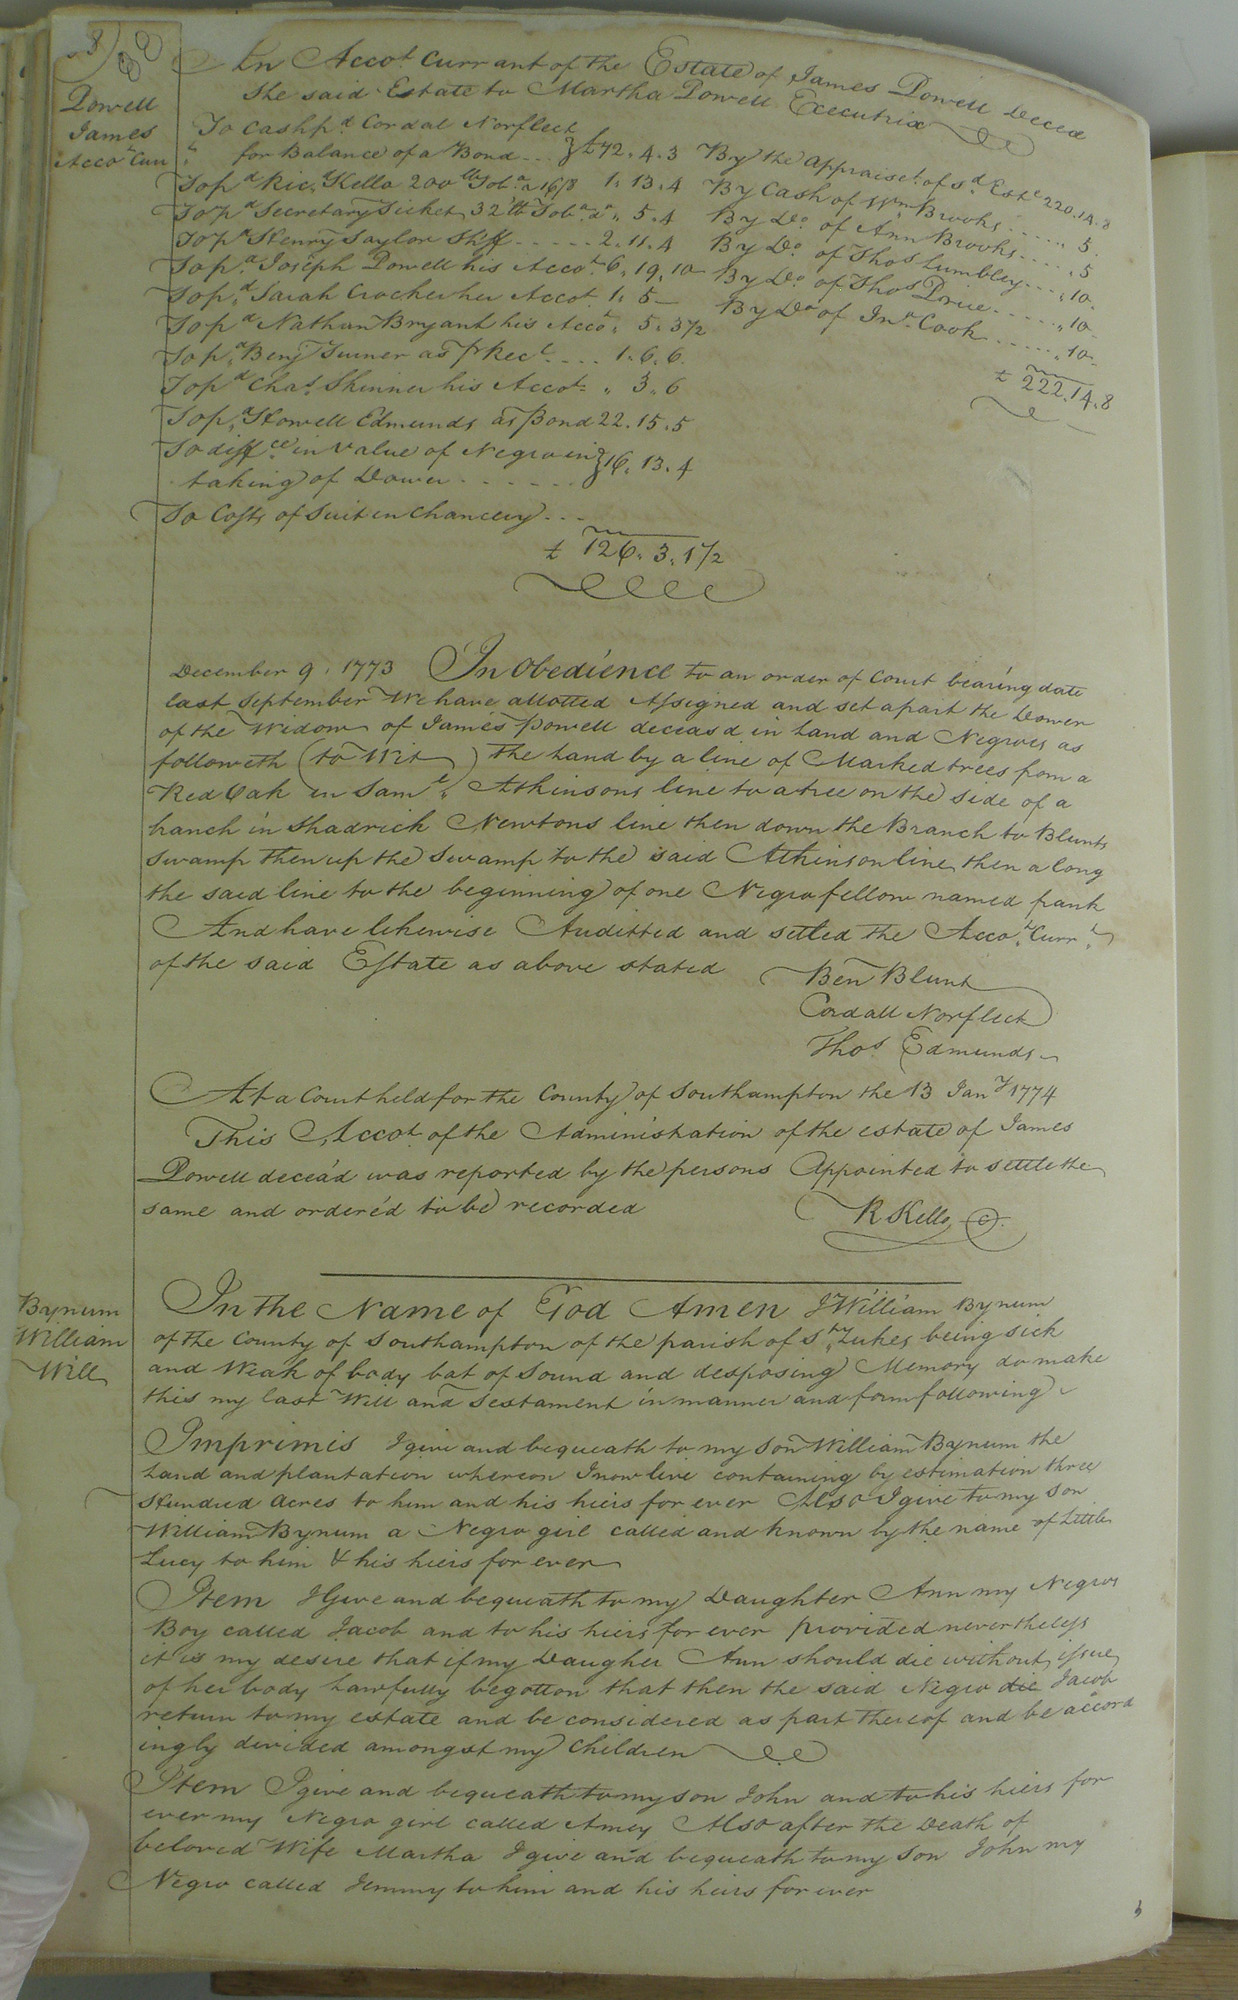 88
Powell
James
Acco.t Curr.t
An Acco.t Currant of the Estate of James Powell Decead
The said Estate to Martha Powell Executrix
To Cash p.d Cordal Norfleet
for Balance of a Bond ... } £72.4.3
To p.d Ric.d Kello 200 lb Tob.o a 16/8 1.13.4
To p.d Secretary Ticket 32 lb Tob.o d.o " 5.4
To p.d Henry Taylor Shff ..... 2.11.4
To p.d Joseph Powell his Acco.t 6.19.10
To p.d Sarah Crocker her Acco.t 1.5—
To p.d Nathan Bryant his Acco.t " 5.3½
To p.d Benj Turner as p Rec.t .... 1.6.6
To p.d Cha.s Skinner his Acco.t " 3.6
To p.d Howell Edmunds as p Bond 22.15.5
To diff.ce in Value of Negro in }
taking of Dower ...... } 16.13.4
To Costs of Suit in Chancery ...
£ 126.3.1½
By the Appraisem.t of s.d Est.e 220.14.8
By Cash of Wm Brooks ..... 5.
By D.o of Ann Brooks .... " 5
By D.o of Thos Lumbley ... " 10
By D.o of Thos Price ..... " 10
By D.o of Jn.o Cook ...... " 10
£ 222.14.8
December 9. 1773 In Obedience to an order of Court bearing date
last September We have allotted Assigned and set apart the Dower
of the Widow of James Powell deceasd in Land and Negroes as
followeth (to Wit) the Land by a line of Marked trees from a
Red Oak in Sam.l Atkinsons line to a tree on the side of a
branch in Shadrick Newtons line then down the Branch to Blunts
Swamp then up the Swamp to the said Atkinson line then along
the said line to the beginning of one Negro fellow named frank
And have likewise Auditted and setled the Acco.t Curr.t
of the said Estate as above stated
Ben Blunt
Cordall Norfleet
Thos Edmunds
At a Court held for the County of Southampton the 13 Jan.y 1774
This Acco.t of the Administration of the estate of James
Powell decea'd was reported by the persons Appointed to settle the
same and order'd to be recorded
R Kello C.
Bynum
William
Will
In the Name of God Amen I William Bynum
of the County of Southampton of the parish of St. Lukes being sick
and Weak of body bat of Sound and desposing Memory do make
this my last Will and Testament in manner and form following
Imprimis I give and bequeath to my Son William Bynum the
Land and plantation whereon I now live containing by estimation three
Hundred Acres to him and his hiers for ever Also I give to my Son
William Bynum a Negro girl called and known by the name of Little
Lucy to him & his hiers for ever
Item I Give and bequeath to my Daughter Ann my Negroe
Boy called Jacob and to his hiers for ever provided nevertheless
it is my desire that if my Daugher Ann should die without issue
of her body Lawfully begotton that then the said Negro die Jacob
return to my estate and be considered as part thereof and be accord
ingly divided amongst my Children
Item I give and bequeath to my son John and to his hiers for
ever my Negro girl called Amey Also after the Death of
beloved Wife Martha I give and bequeath to my Son John my
Negro called Jemmy to him and his heirs for ever